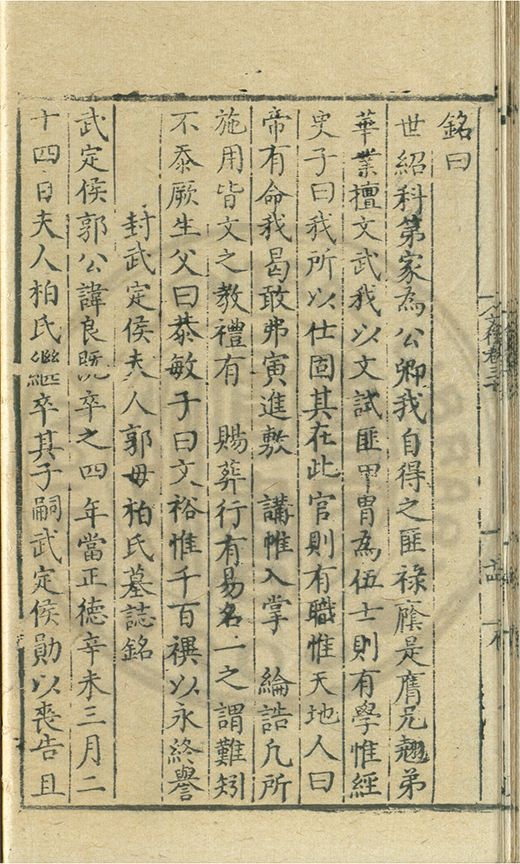 銘曰
世紹科第家為公卿我自得之匪祿廕是膺兄翹弟
華業擅文武我以文試匪甲冑為伍士則有學惟經
史子曰我所以仕固其在此官則有職惟天地人曰
帝有命我曷敢弗寅進敷　講帷入掌　綸誥凡所
施用皆文之教禮有　賜葬行有易名一之謂難矧
不忝厥生父曰恭敏子曰文裕惟千百禩以永終譽
封武定侯夫人郭母柏氏墓誌銘
武定侯郭公諱良旣卒之四年當正德辛未三月二
十四日夫人柏氏繼卒其子嗣武定侯勛以喪告且